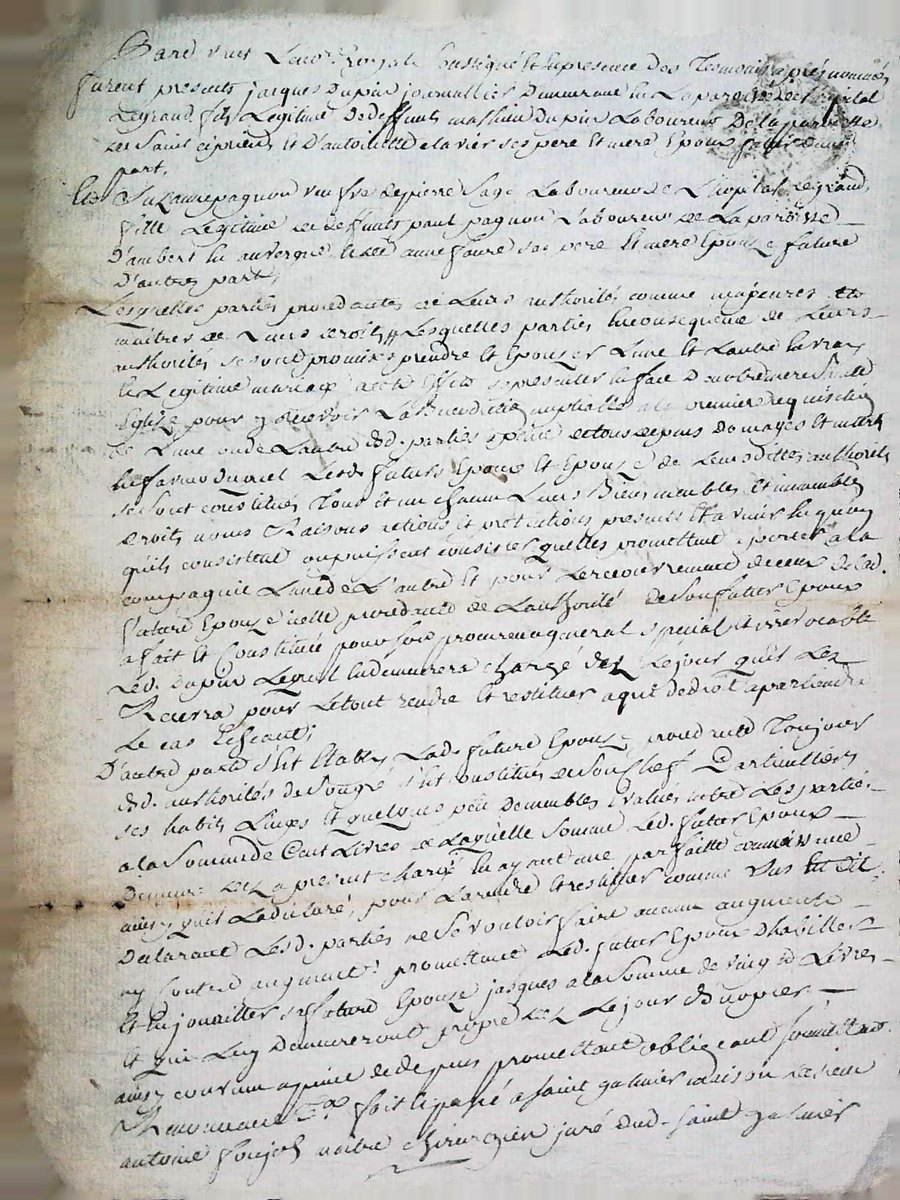 Pard vant Leno.re royale soussigné Et En presence des Temoins après nommés
furent presents jacques Dupin journallier Demeurant En La paroisse de L'hopital
Legrand, fils Legitime De deffunts mathieu Dupin Laboureur De la paroisse
de Saint ciprien, et D'antoinette clavier ses pere Et mere Epoux futur D'une
part,
Et Suzanne pagnon veufve de pierre Sage Laboureur de L'hopital Legrand,
fille Legitime de deffunts paul pagnon Laboureur De La paroisse
D'ambert En auvergne Et de anne faure ses pere Et mere Epouze future
D'autre part,
Lesquelles parties procedantes de Leurs authorités comme majeures Et
maitres de Leurs droits, Lesquelles parties En consequence de Leurs
authorités se sont promises prendre Et Epouzer L'une Et L'autre En vray
Et Legitime mariage a cet Effet se presenter En face De notre mere Ste
Eglize pour y recevoir La Benediction nuptialle a la premiere requisition
de L'une ou de L'autre desd. parties a peine de tous depens Domages Et interets
En faveur Duquel Lesd. futurs Epoux Et Epouze De Leursdittes authorités
se sont constitués Tous Et un chacun Leurs Biens meubles Et immeubles
Droits noms Raisons actions Et pretentions presents Et a venir En quoy
qu'ils consistent ou puissent consister qu'elles promettent aporter a la
compagnie L'une de L'autre Et pour Le recouvrement de ceux de Lad.
future Epouze icelle procedante de L'authorité de son futur Epoux
a fait Et Constitué pour son procureur general special Et irrevocable
Led. Dupin Lequel En demeurera chargé dez Le jour qu'il Les
Recevra pour Le tout rendre Et restituer a qui de droit apartiendra
Le cas Echeant;
D'autre part s'est Etably Lad. future Epouze, procedante Toujours
desd. authorités de son gré s'est constituée de son chef Particulliers
ses habits Linges et quelques peu De meubles Evalués entre Les parties
a la Somme de Cent Livres de Laquelle Somme Led. futur Epoux
Demeure dez a present chargé En ayant une parfaitte connoissance
ainsy qu'il La déclaré, pour La rendre Et restituer comme dus Est dit,
Declarant Lesd. parties ne se vouloir faire aucun augment
ny contre augment promettant Led. futur Epoux D'habiller
Et En jouailler sa future Epouze jusques a la Somme de vingt Livres
Et qui Luy Demeureront propre dez Le jour Du nopces
ainsy convenu a peine de depens promettant obligeant soumettant
Renonceant &a fait Et passé a Saint galmier maison de sieur
antoine maitre chirurgien juré dud. Saint galmier